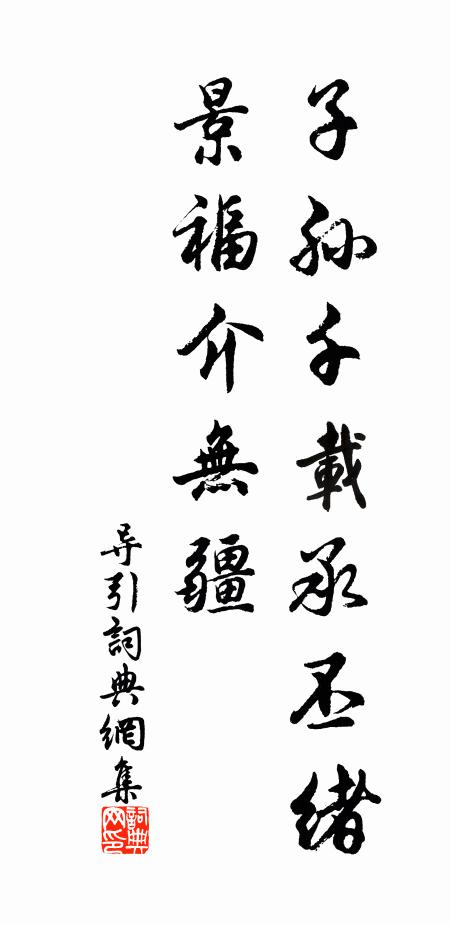 子孫千載承丕緒
景福介無疆
导引詞典網集
詞典网印